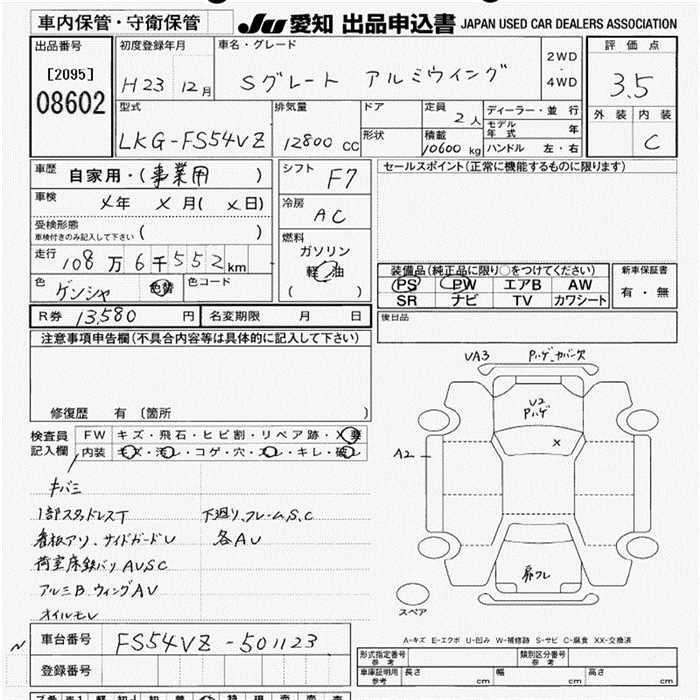 車内保管・守衛保管
JU 愛知 出品申込書 JAPAN USED CAR DEALERS ASSOCIATION
出品番号
[2095]
08602
初度登録年月
H23 12月
車名・グレード
Sグレート アルミウイング
2WD
・
4WD
評価点
3.5
外装 内装
C
型式
LKG-FS54VZ
排気量
12800 cc
ドア
形状
定員
2人
積載
10600 kg
ディーラー・並行
モデル年式 年
ハンドル 左・右
車歴 自家用・(事業用)
車検 メ年 メ月(メ日)
受検形態
車検付きのみ記入して下さい ( )
走行 108万6千552km
色 ゲンシャ 色替 色コード
シフト F7
冷房 AC
燃料
ガソリン
軽油
( )
セールスポイント(正常に機能するものに限ります)
装備品(純正品に限り○をつけてください)
PS PW エアB AW
SR ナビ TV カワシート
新車保証書
有・無
R券 13,580円 名変期限 月 日
後日品
注意事項申告欄(不具合内容等は具体的に記入して下さい)
修復歴 有 〔箇所 〕
検査員記入欄
FW キズ・飛石・ヒビ割・リペア跡・X要
内装 キズ・汚レ・コゲ・穴・スレ・キレ・破レ
キバミ
1部スタッドレスT 下廻り、フレームS、C
看板アリ、サイドガードU 各AU
荷室床鉄バリAUSC
アルミB、ウィングAU
オイルモレ
UA3 Pハゲ、カバー欠
U2
Pハゲ
×
A2
扉フレ
スペア
A-キズ E-エクボ U-凹み W-補修跡 S-サビ C-腐食 XX-交換済
車台番号 FS54VZ-501123
登録番号
形式指定番号
参考
類別区分番号
参考
車庫証明用
参考
長さ cm 幅 cm 高さ cm